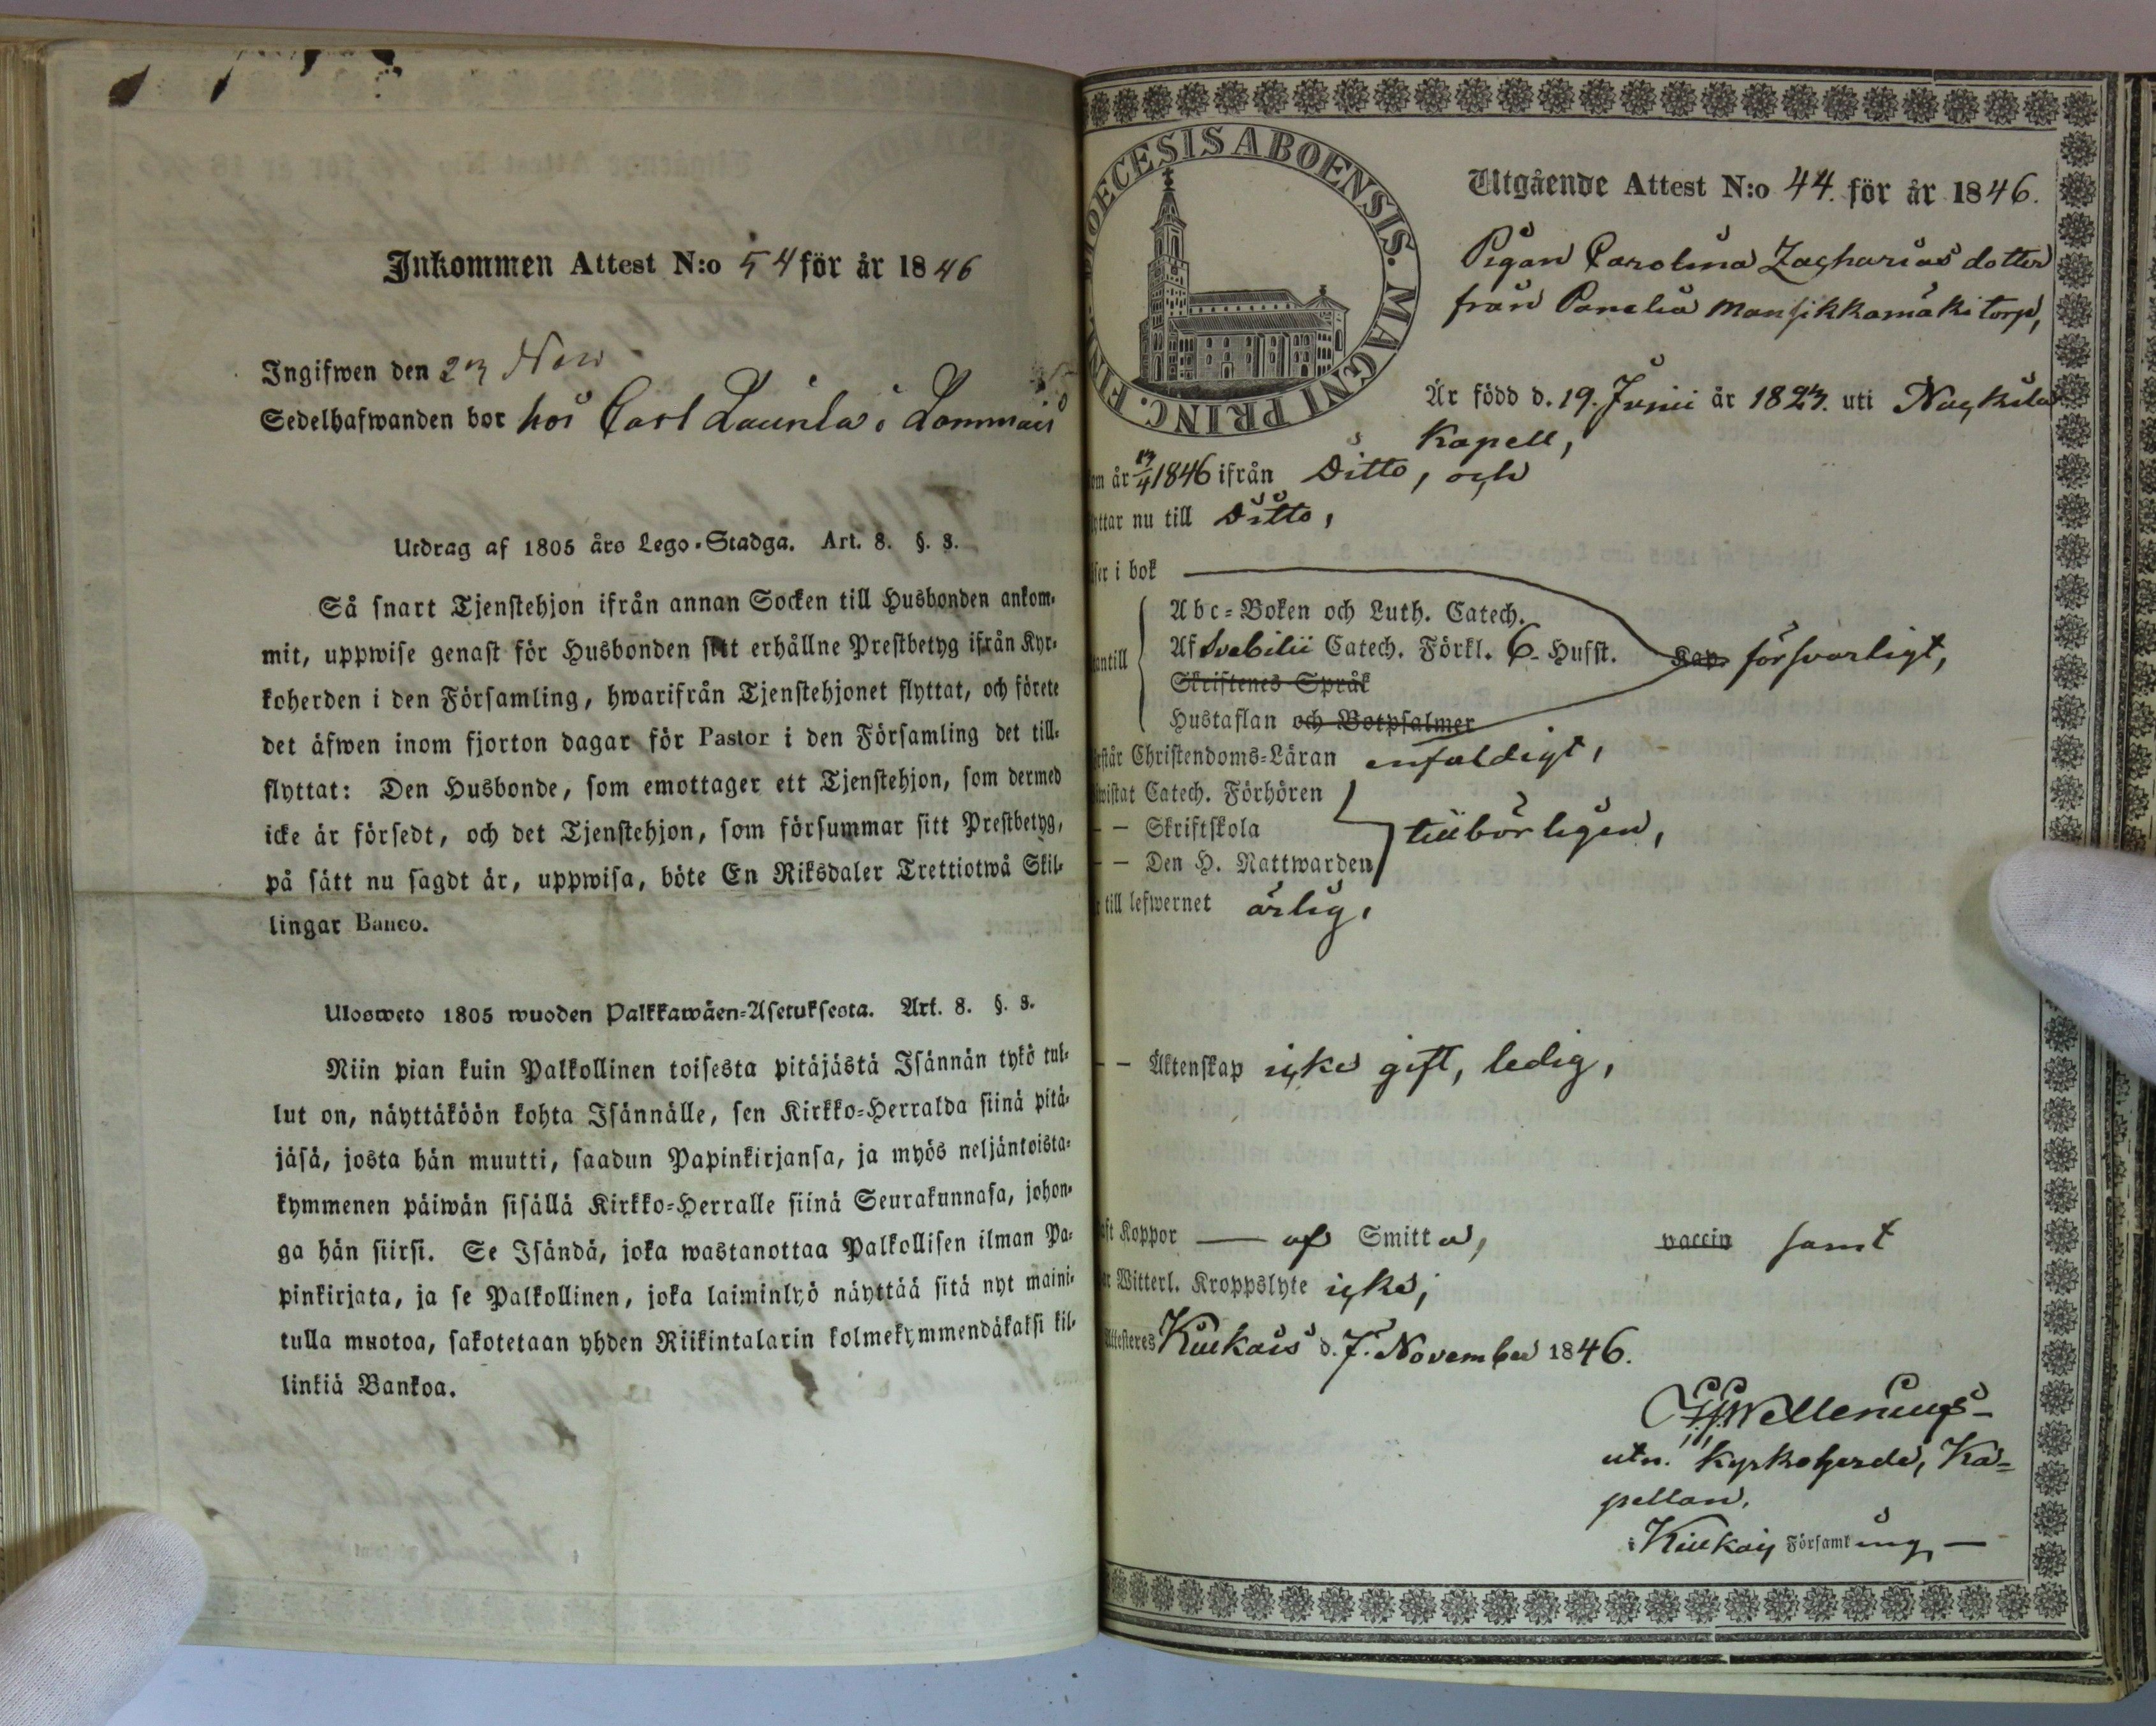 Inkommen Attest N:o 54 för år 1846
Ingifwen den 23 Nov
Sedelhafwanden bor hos Carl Launla i Lammais
Utdrag af 1805 års Lego-Stadga. Art. 8. §. 3.
Så snart Tjenstehjon ifrån annan Socken till Husbonden ankom-
mit, uppwise genast för Husbonden sitt erhållne Prestbetyg ifrån Kyr-
koherden i den Församling, hwarifrån Tjenstehjonet flyttat, och förete
det äfwen inom fjorton dagar för Pastor i den Församling det till-
flyttat: Den Husbonde, som emottager ett Tjenstehjon, som dermed
icke är försedt, och det Tjenstehjon, som försummar sitt Prestbetyg,
på sätt nu sagdt är, uppwisa, böte En Riksdaler Trettiotwå Skil-
lingar Banco.
Ulosweto 1805 wuoden Palkkawäen-Asetuksesta. Art. 8. §. 3.
Niin pian kuin Palkollinen toisesta pitäjästä Isännän tykö tul-
lut on, näyttäköön kohta Isännälle, sen Kirkko-Herralda siinä pitä-
jäsä, josta hän muutti, saadun Papinkirjansa, ja myös neljäntoista-
kymmenen päiwän sisällä Kirkko-Herralle siinä Seurakunnasa, johon-
ga hän siirsi. Se Isändä, joka wastanottaa Palkollisen ilman Pa-
pinkirjata, ja se Palkollinen, joka laiminlyö näyttää sitä nyt maini-
tulla muotoa, sakotetaan yhden Riikintalarin kolmekymmendäkaksi kil-
linkiä Bankoa.
DIOECESIS ABOENSIS. MAGNI PRINC. FINL.
Utgående Attest N:o 44. för år 1846.
Pigan Carolina Zacharias dotter
från Panelia Mansikkamäki torp,
Är född d. 19. Junii år 1823. uti Nackila
Kapell,
om år 13/4 1846 ifrån Ditto, och
yttar nu till Ditto,
ser i bok
Abc-Boken och Luth. Catech.
antill Af Svebilii Catech. Förkl. 6. Hufst. Kap. försvarligt,
Skriftenes Språk
Hustaflan och Botpsalmer
rstår Christendoms-Läran enfaldigt,
wistat Catech. Förhören
— — Skriftskola tillbörligen,
— — Den H. Nattwarden
till lefwernet ärlig,
— — Äktenskap icke gift, ledig,
aft Koppor — af Smitta, vaccin samt
ar Witterl. Kroppslyte icke,
Attesteres Kiukais d. 7. November 1846.
Wellenius
utn. Kyrkoherde, Ka=
pellan.
i Kiukais Församling —